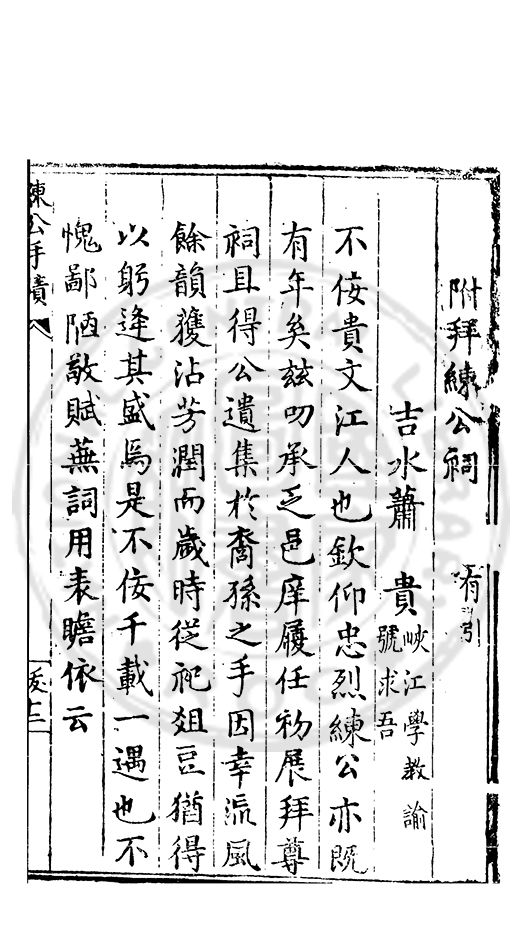 附拜練公祠 有引
吉水蕭 貴 峽江學教諭
號求吾
不佞貴文江人也欽仰忠烈練公亦既
有年矣兹叨承乏邑庠履任初展拜尊
祠且得公遺集於裔孫之手因幸流風
餘韻獲沾芳潤而歲時從祀俎豆猶得
以躬逢其盛焉是不佞千載一遇也不
愧鄙陋敬賦蕪詞用表瞻依云
練公手牘
後十二